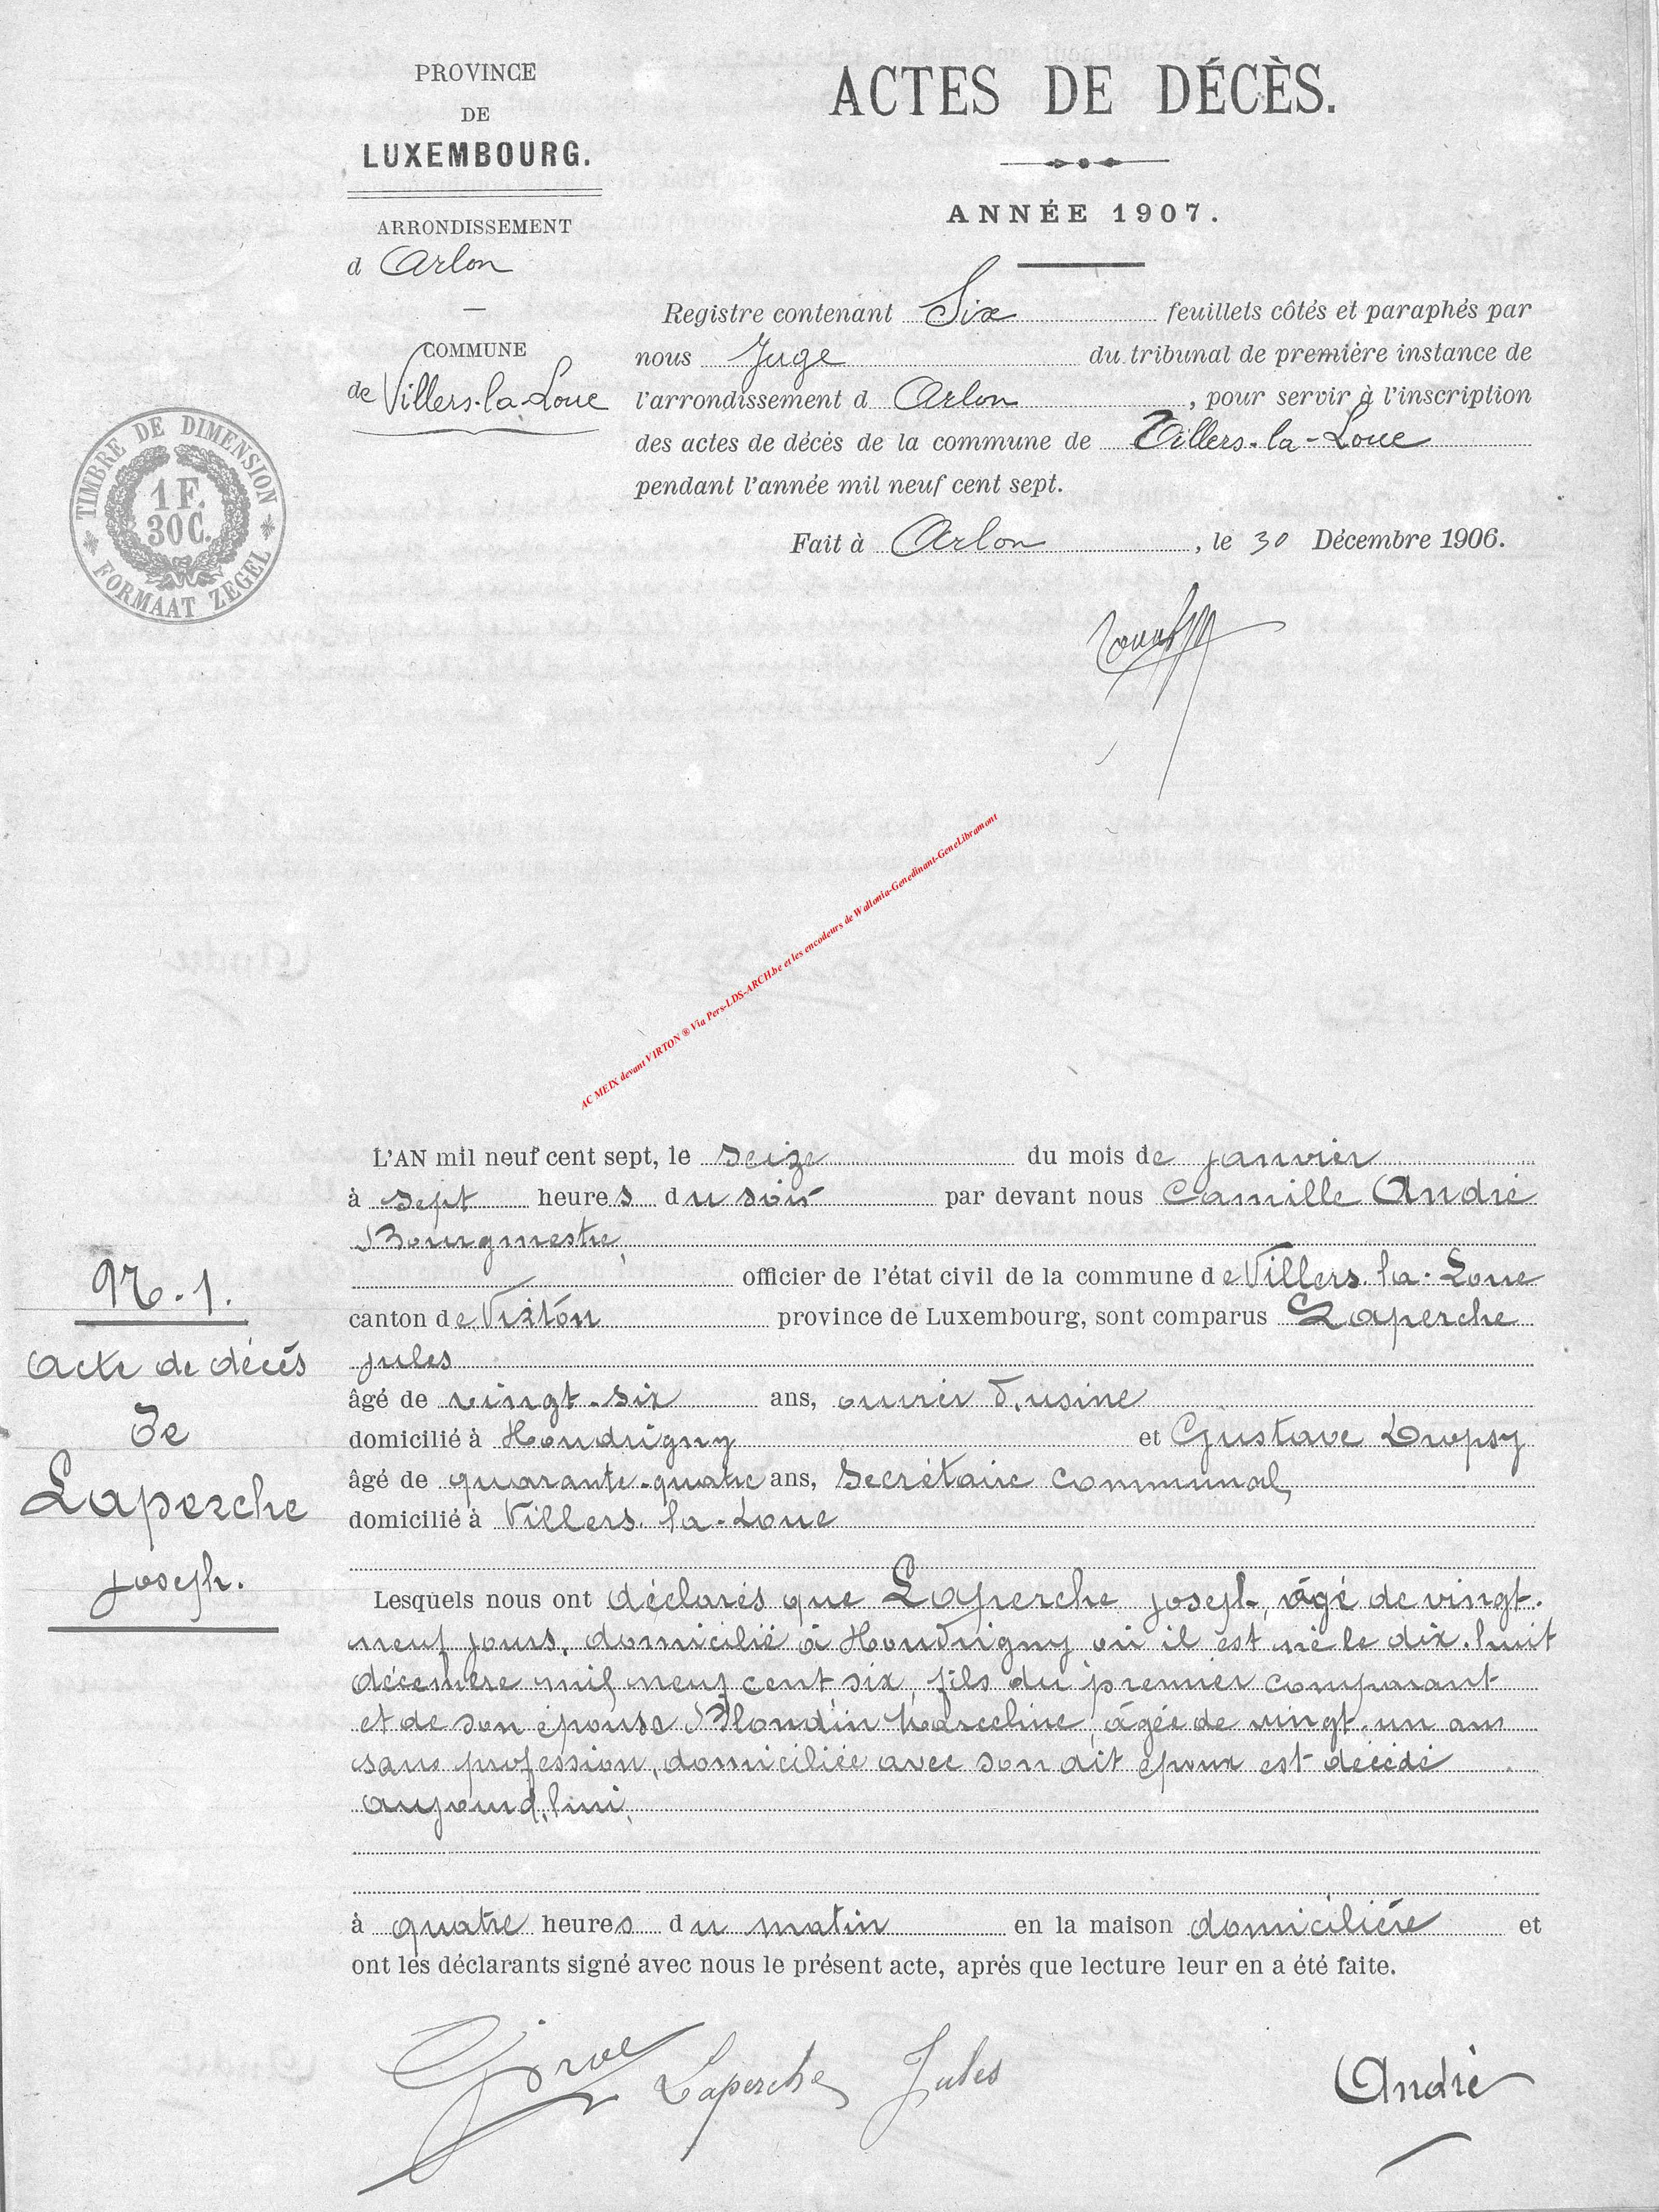 PROVINCE
DE
LUXEMBOURG.
ARRONDISSEMENT
d Arlon
COMMUNE
de Villers-la-Loue
TIMBRE DE DIMENSION
1 F.
30 C.
FORMAAT ZEGEL
ACTES DE DÉCÈS.
ANNÉE 1907.
Registre contenant Six feuillets côtés et paraphés par
nous Juge du tribunal de première instance de
l'arrondissement d Arlon, pour servir à l'inscription
des actes de décès de la commune de Villers-la-Loue
pendant l'année mil neuf cent sept.
Fait à Arlon, le 30 Décembre 1906.
AC MEIX devant VIRTON ® Via Pers-LDS-ARCH.be et les encodeurs de Wallonia-Genedinant-GeneLibramont
N. 1.
Acte de décès
De
Laperche
joseph.
L'AN mil neuf cent sept, le seize du mois de janvier
à sept heures du soir par devant nous Camille André
Bourgmestre,
officier de l'état civil de la commune de Villers-la-Loue
canton de Virton province de Luxembourg, sont comparus Laperche
jules
âgé de vingt-six ans, ouvrier d'usine
domicilié à Houdrigny et Gustave Dropsy
âgé de quarante-quatre ans, Secrétaire communal,
domicilié à Villers-la-Loue
Lesquels nous ont déclarés que Laperche joseph, âgé de vingt-
neuf jours, domicilié à Houdrigny où il est né le dix-huit
décembre mil neuf cent six, fils du premier comparant
et de son épouse Blondin Marceline, âgée de vingt-un ans
sans profession, domiciliée avec son dit époux est décédé
aujourd'hui,
à quatre heures du matin en la maison domicilière et
ont les déclarants signé avec nous le présent acte, après que lecture leur en a été faite.
Laperche Jules
André